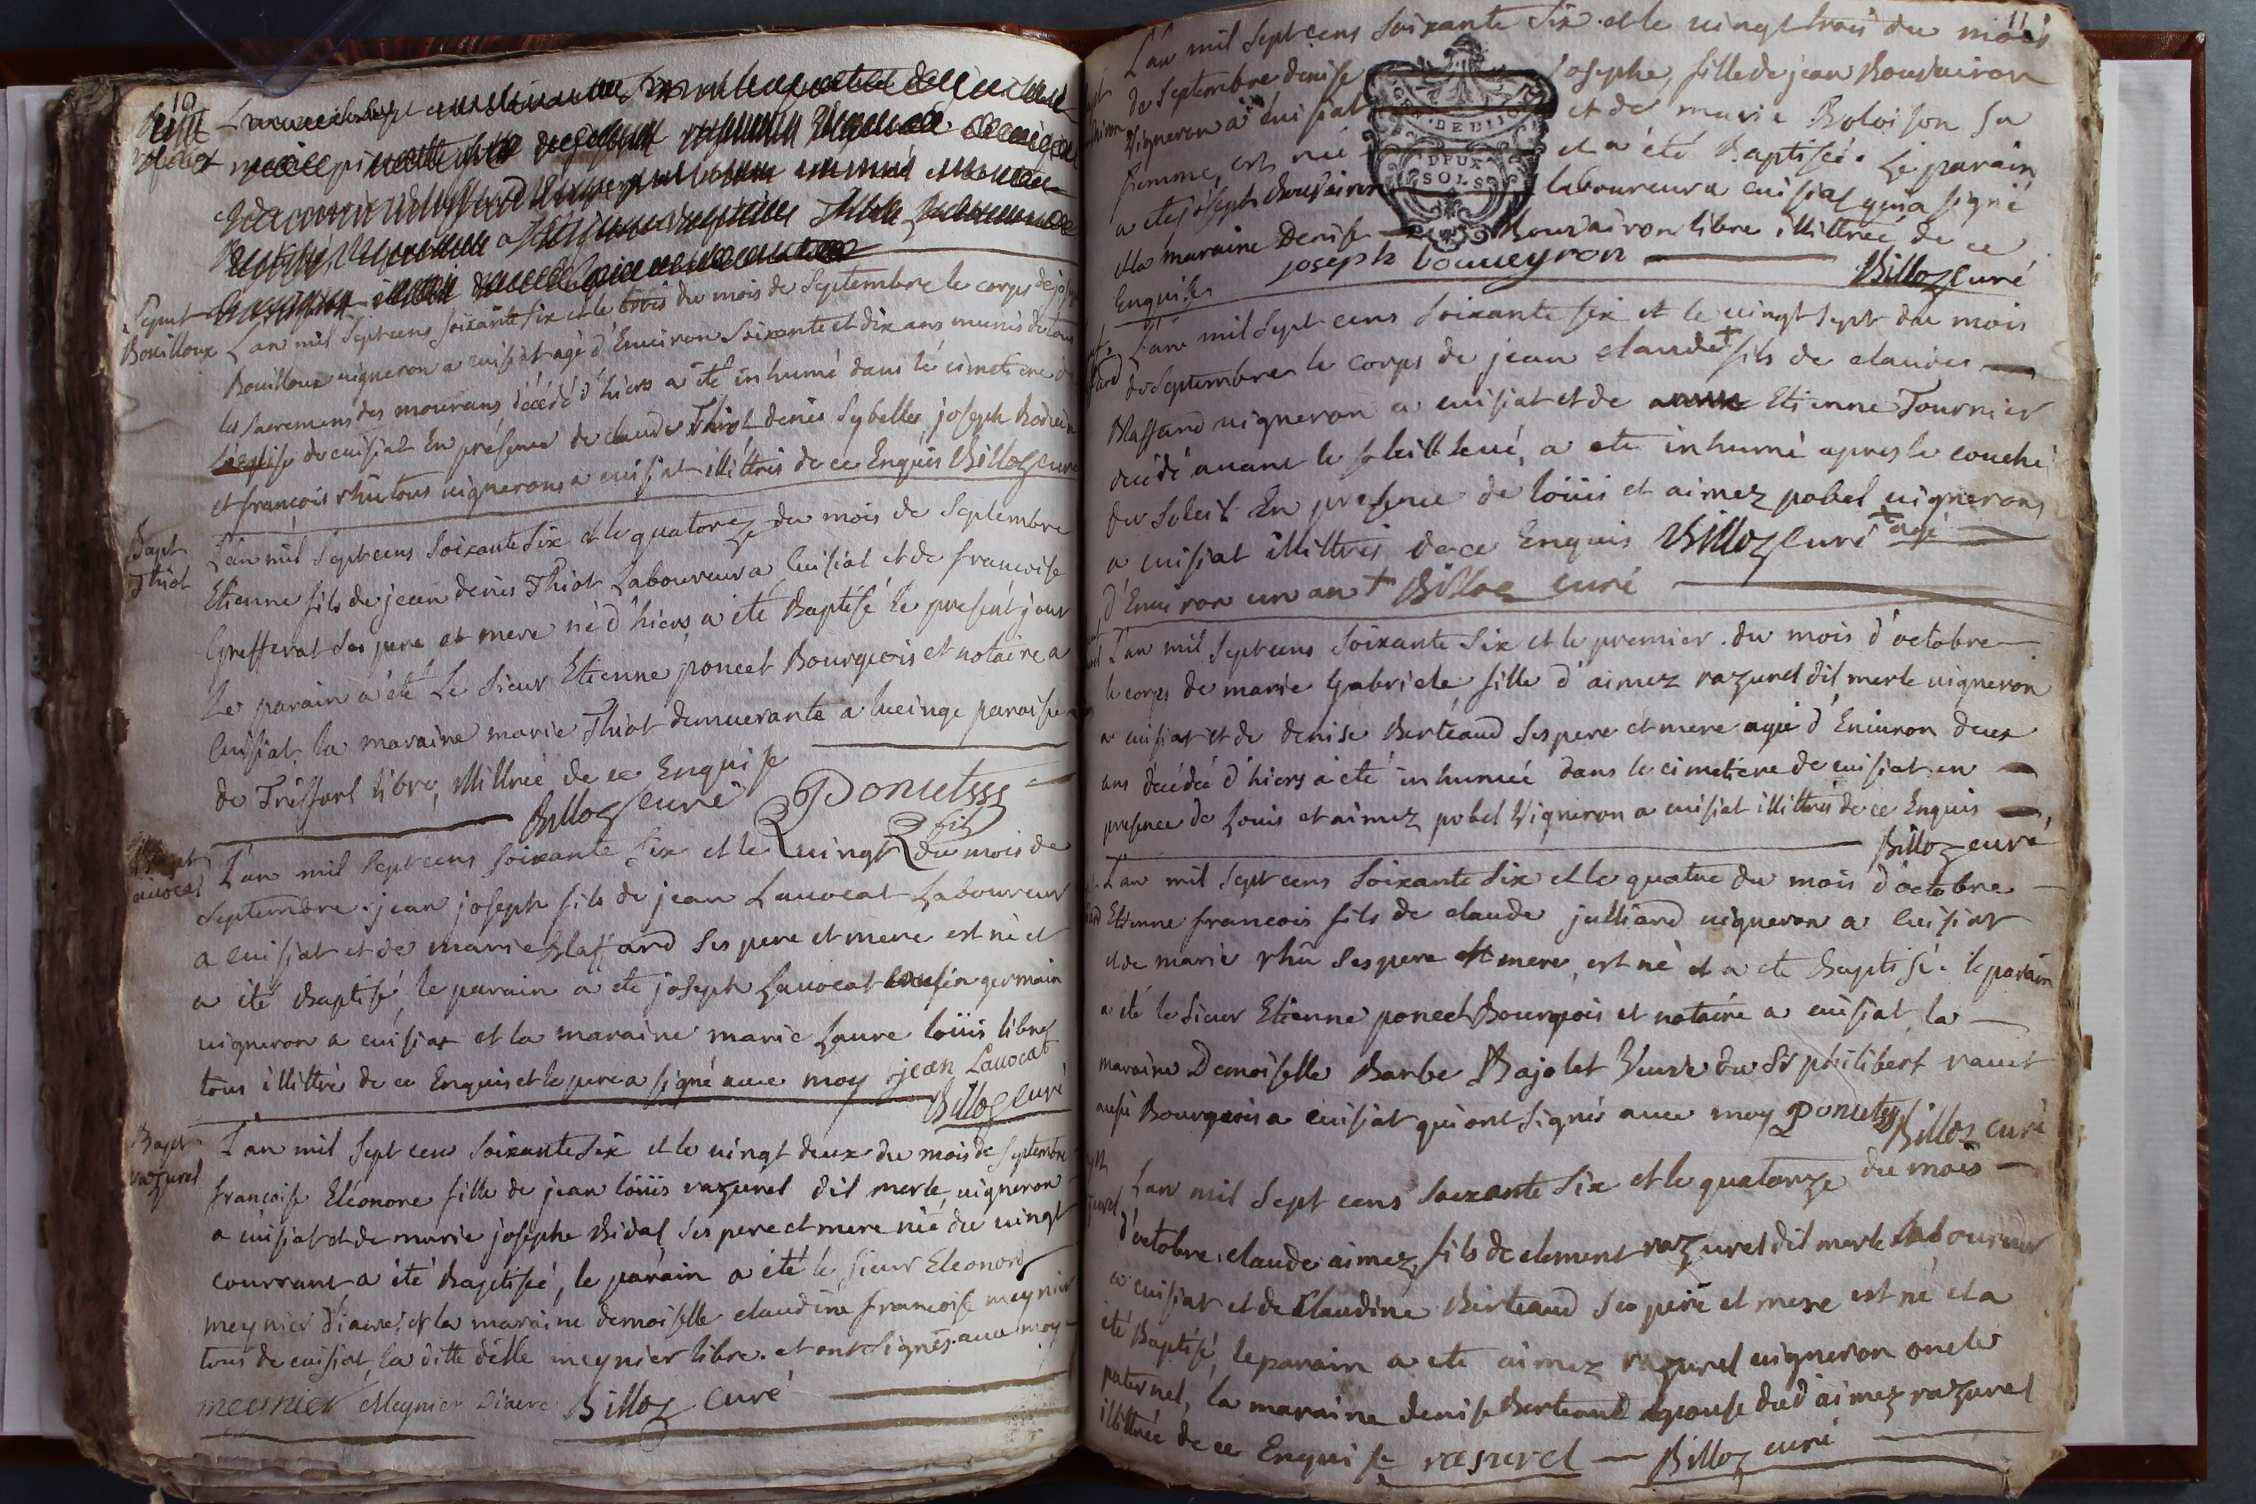 10
Sepult
Bouilloux
L'an mil Sept cens soixante six et le trois du mois de Septembre le corps de
Bouilloux vigneron a cuisiat agé d'Environ Soixante et dix ans munis de tous
les Sacremens des mourans décédé d'hiers a été inhumé dans le cimetiere
L'eglise de cuisiat En présence de claude Thiot denis Sybelle, joseph
et françois rhu tous vignerons a cuisiat illittrés de ce Enquis Billoz curé
Bapt
Thiot
L'an mil Sept cens Soixante Six et le quatorze du mois de Septembre
Etienne fils de jean denis Thiot Laboureur a Cuisiat et de francoise
Grefferat Ses pere et mere né d'hiers a été Baptisé le present jour
Le parain a été Le Sieur Etienne poncet Bourgeois et notaire a
Cuisiat, la maraine marie Thiot demeurante a lucinge paroisse
de Treffort libre, illittrée de ce Enquise
Billoz curé Poncet
fils
Bapt
auocat
L'an mil Sept cens soixante Six et le vingt du mois de
Septembre. jean joseph fils de jean Lauocat Laboureur
a cuisiat et de marie Blaffard Ses pere et mere est né et
a été Baptisé, le parain a ete joseph Lauocat cousin germain
uigneron a cuisiat et la maraine marie Laure loüis libres
tous illittré de ce Enquis et le pere a signé auec moy jean Lauocat
Billoz curé
Bapt
razurel
L'an mil Sept cens Soixante Six et le vingt deux du mois de Septembre
francoise Eléonore fille de jean loüis razurel dit merle, uigneron
a cuisiat et de marie josephe Vidal Ses pere et mere née du vingt
courrant a été Baptisée, le parain a été le Sieur Eleonord
meynier diacre, et la maraine demoiselle claudine francoise meynier
tous de cuisiat, la ditte delle meynier libre. et ont Signés auec moy
meynier Meynier Diacre Billoz curé
11
L'an mil Sept cens Soixante Six et le vingt trois du mois
de Septembre denise josephe, fille de jean Bouvairon
Vigneron a Cuisiat et de marie Boloison Sa
femme, est née et a été Baptisée. Le parain
a été joseph Bouvairon laboureur a cuisiat qui a signé
et la maraine Denise Bouvairon libre illittrée de ce
Enquise joseph bouueyron Billoz curé
DEUX
SOLS
L'an mil Sept cens Soixante Six et le vingt Sept du mois
de Septembre le corps de jean claude + fils de claude
Blaffard uigneron a cuisiat et de Etienne Tournier
decédé auant le soleill leué, a ete inhumé apres le couché
du Soleil En presence de loüis et aimez pobel uignerons
a cuisiat illittrés de ce Enquis Billoz curé + agé
d'Environ un an + Billoz curé
L'an mil Sept cens Soixante Six et le premier du mois d'octobre
le corps de marie Gabriele fille d'aimez razurel dit merle uigneron
a cuisiat et de denise Berteaud Ses pere et mere agée d'Environ deux
ans decédée d'hiers a été inhumée dans le cimetiere de cuisiat en
presence de Louis et aimez pobel Vigneron a cuisiat illittrés de ce Enquis
Billoz curé
L'an mil Sept cens Soixante Six et le quatre du mois d'octobre
Etienne francois fils de claude julliard uigneron a Cuisiat
et de marie rhu Ses pere et mere, est né et a ete Baptisé. le parain
a été le Sieur Etienne poncet Bourgeois et notaire a cuisiat, la
maraine Demoiselle Barbe Bajolet Veuve du Sr philibert rauet
aussi Bourgeois a cuisiat qui ont Signés auec moy Poncet Billoz curé
L'an mil Sept cens Soixante Six et le quatorze du mois
d'octobre. claude aimez, fils de clement razurel dit merle Laboureur
a cuisiat et de Claudine Berteaud Ses pere et mere est né et a
été Baptisé, le parain a ete aimez razurel uigneron oncle
paternel, la maraine denise Berteaud epouse dud aimez razurel
illittrée de ce Enquise rasurel Billoz curé